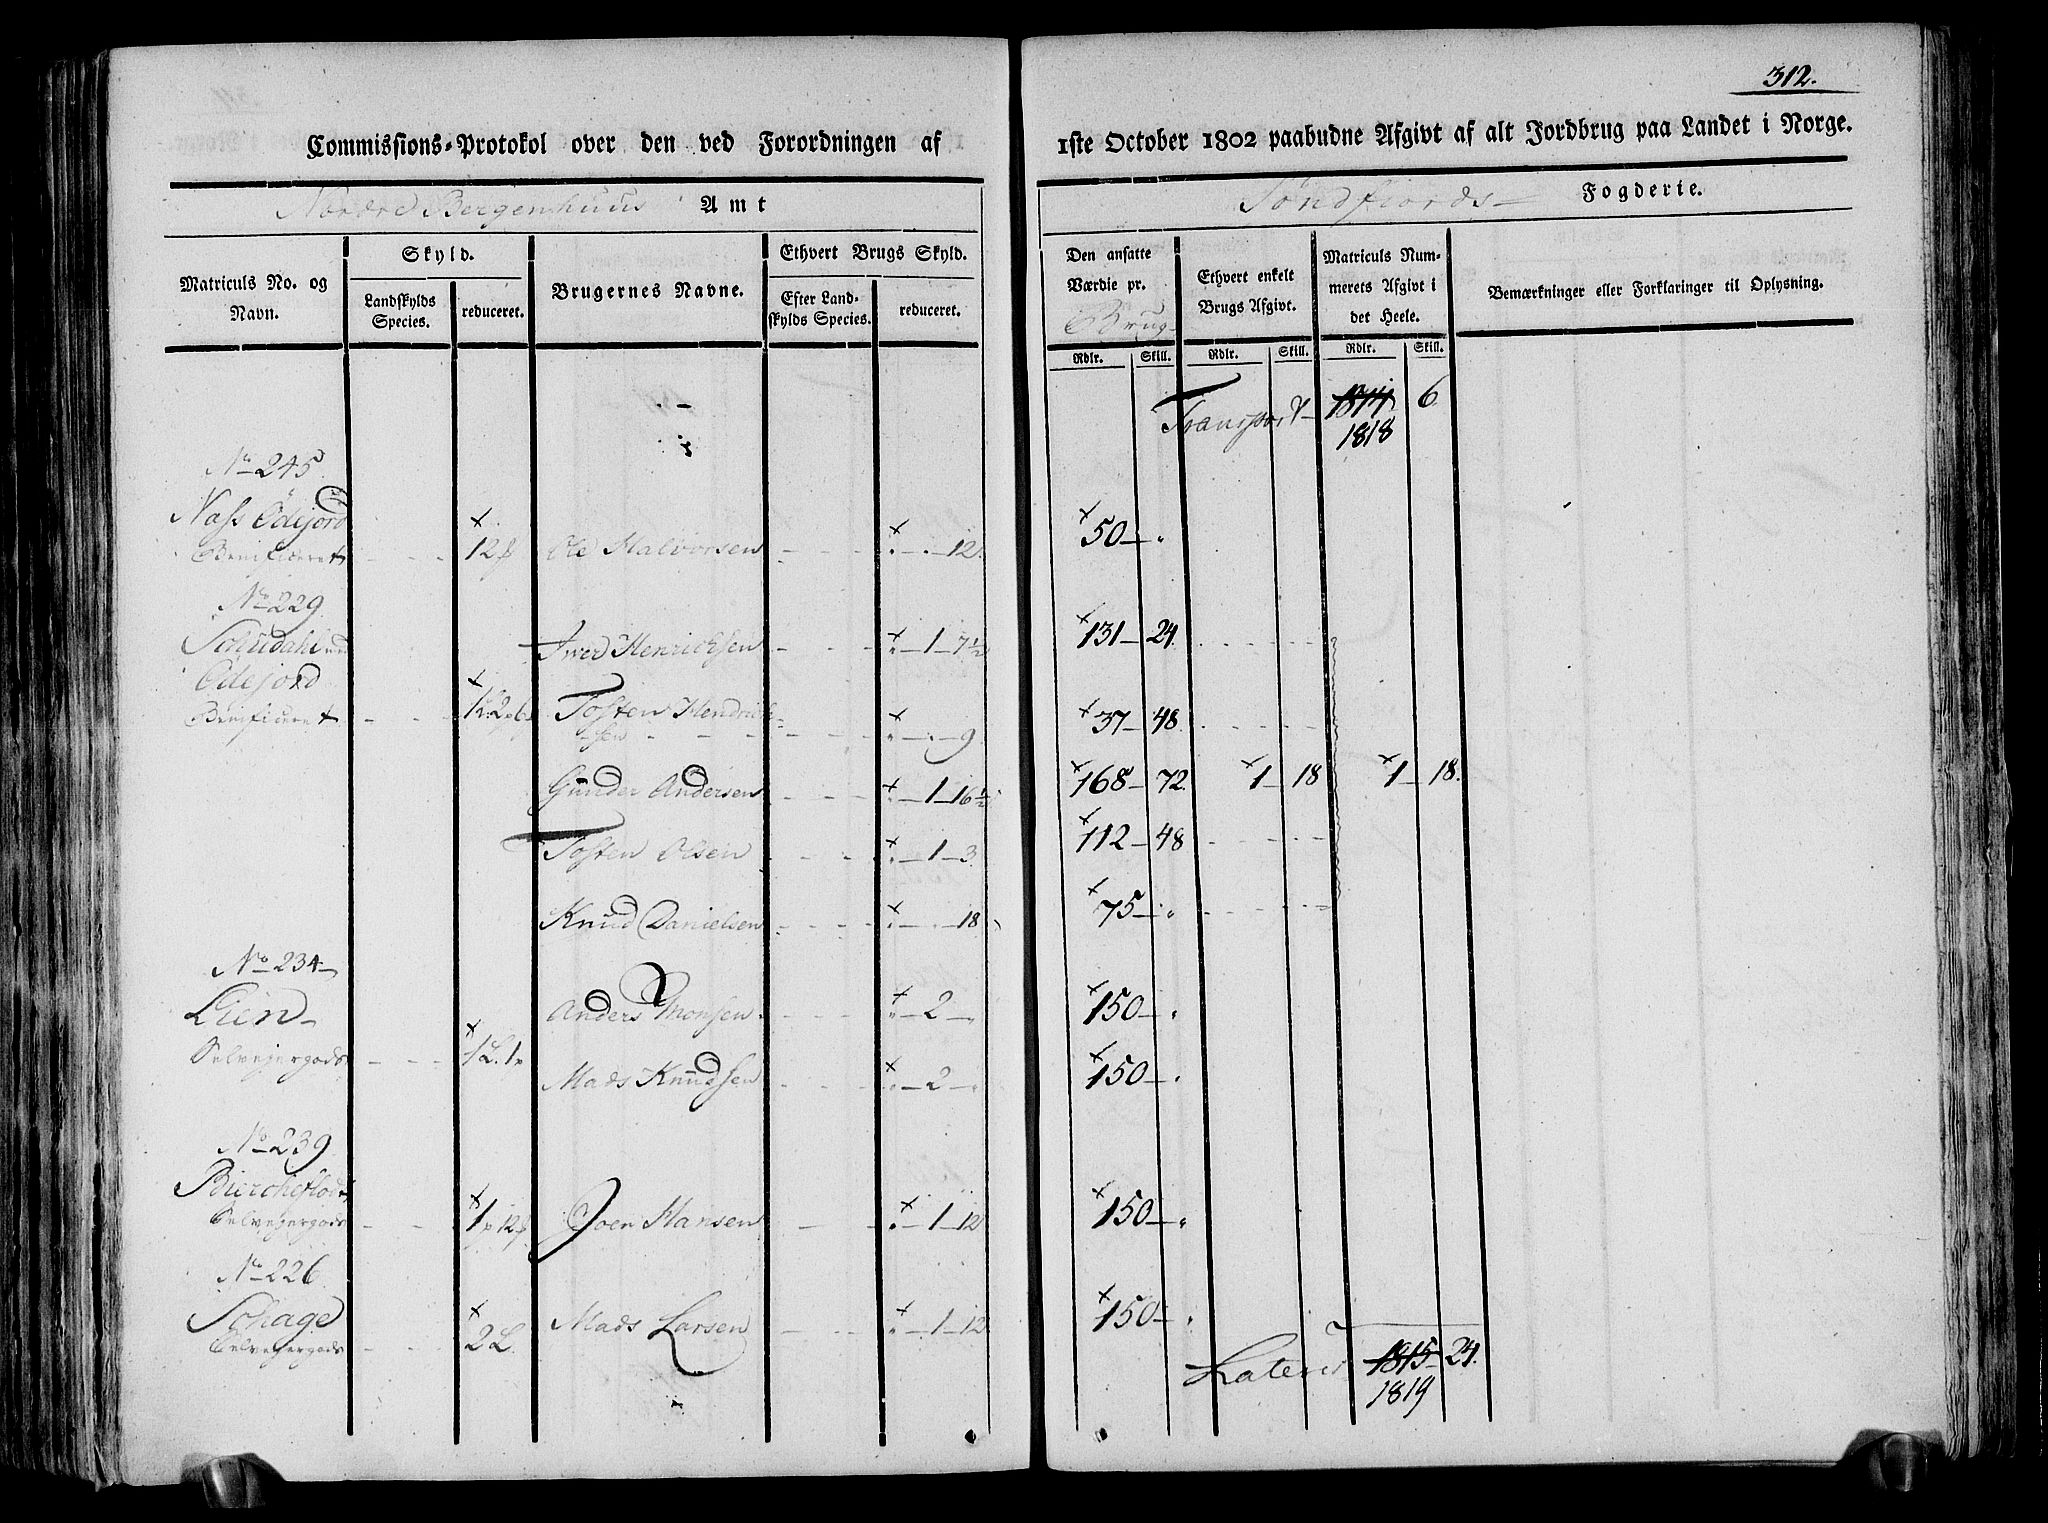 312.
Commissions-Protokol over den ved Forordningen af 1ste October 1802 paabudne Afgivt af alt Jordbrug paa Landet i Norge.
Nordre Bergenhuus Amt
Søndfiords Fogderie.
Matriculs No. og Navn.
Skyld.
Landskylds Species.
reduceret.
Brugernes Navne.
Ethvert Brugs Skyld.
Efter Landskylds Species.
reduceret.
Den ansatte Værdie pr. Brug
Ethvert enkelt Brugs Afgivt.
Matriculs Nummerets Afgivt i det Heele.
Bemærkninger eller Forklaringer til Oplysning.
Rdlr. Skill. Rdlr. Skill. Rdlr. Skill.
Transport 1814 6
1818
No 245
Næss Ødejord
Benificeret 12 Ole Halvorsen 12 50
No 229
Schudahl
Ødejord
Iver Henrichsen 1 7½ 131 24
Benificeret 1 2 6 Tosten Hendrichsen 9 37 48
Gunder Andersen 1 16½ 168 72 1 18 1 18
Tosten Olsen 1 3 112 48
Knud Danielsen 18 75
No 234
Lien
Anders Monsen 2 150
Selvejergods 1 L. 1
Mads Knudsen 2 150
No 239
Bircheflod
Selvejergods 1 12 Joen Hansen 1 12 150
No 226
Schage
Selvejergods 2 L. Mads Larsen 1 12 150
Lateris 1815 24
1819